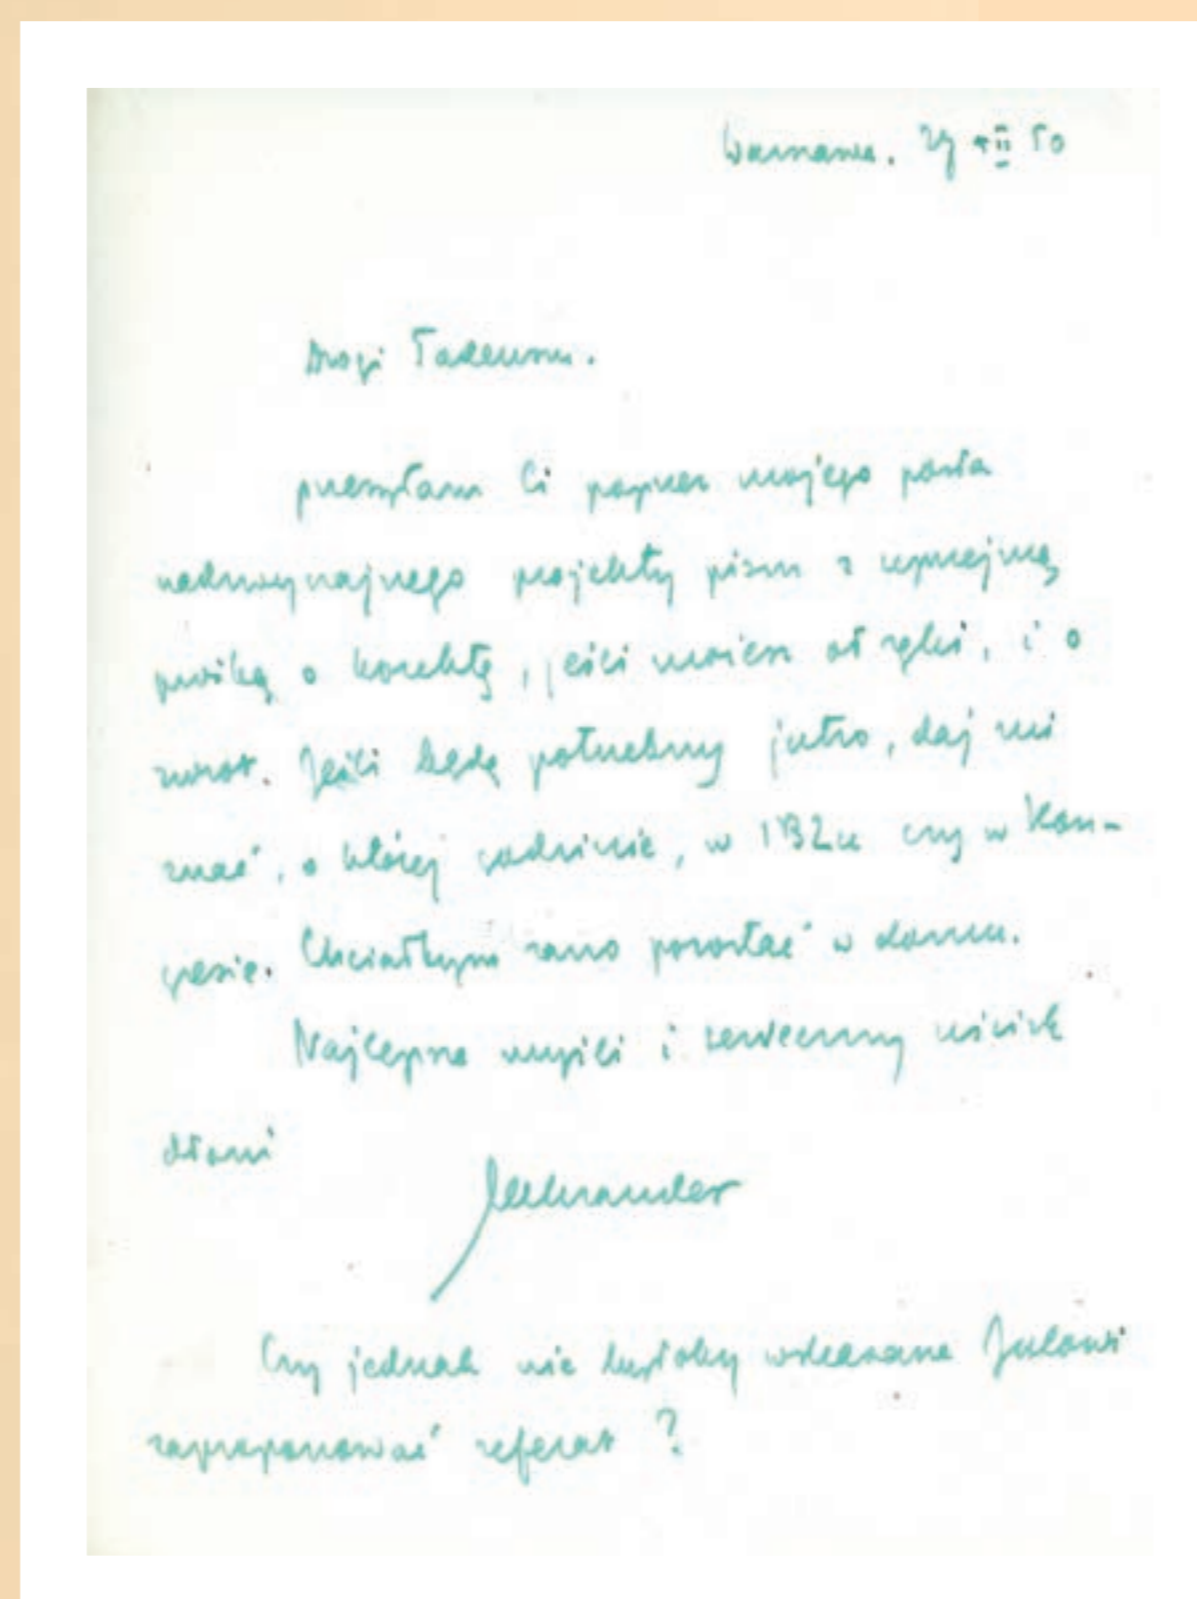 Warszawa. 29 XII 50
Drogi Tadeuszu.
przesyłam Ci poprzez mojego posła
nadzwyczajnego projekty pism z uprzejmą
prośbą o korektę, jeśli możesz od ręki, i o
zwrot. Jeśli będę potrzebny jutro, daj mi
znać, o której godzinie, w IBLu czy w Kon-
gresie. Chciałbym rano pozostać w domu.
Najlepsze myśli i serdeczny uścisk
dłoni
Aleksander
Czy jednak nie byłoby wskazane Julowi
zaproponować referat?